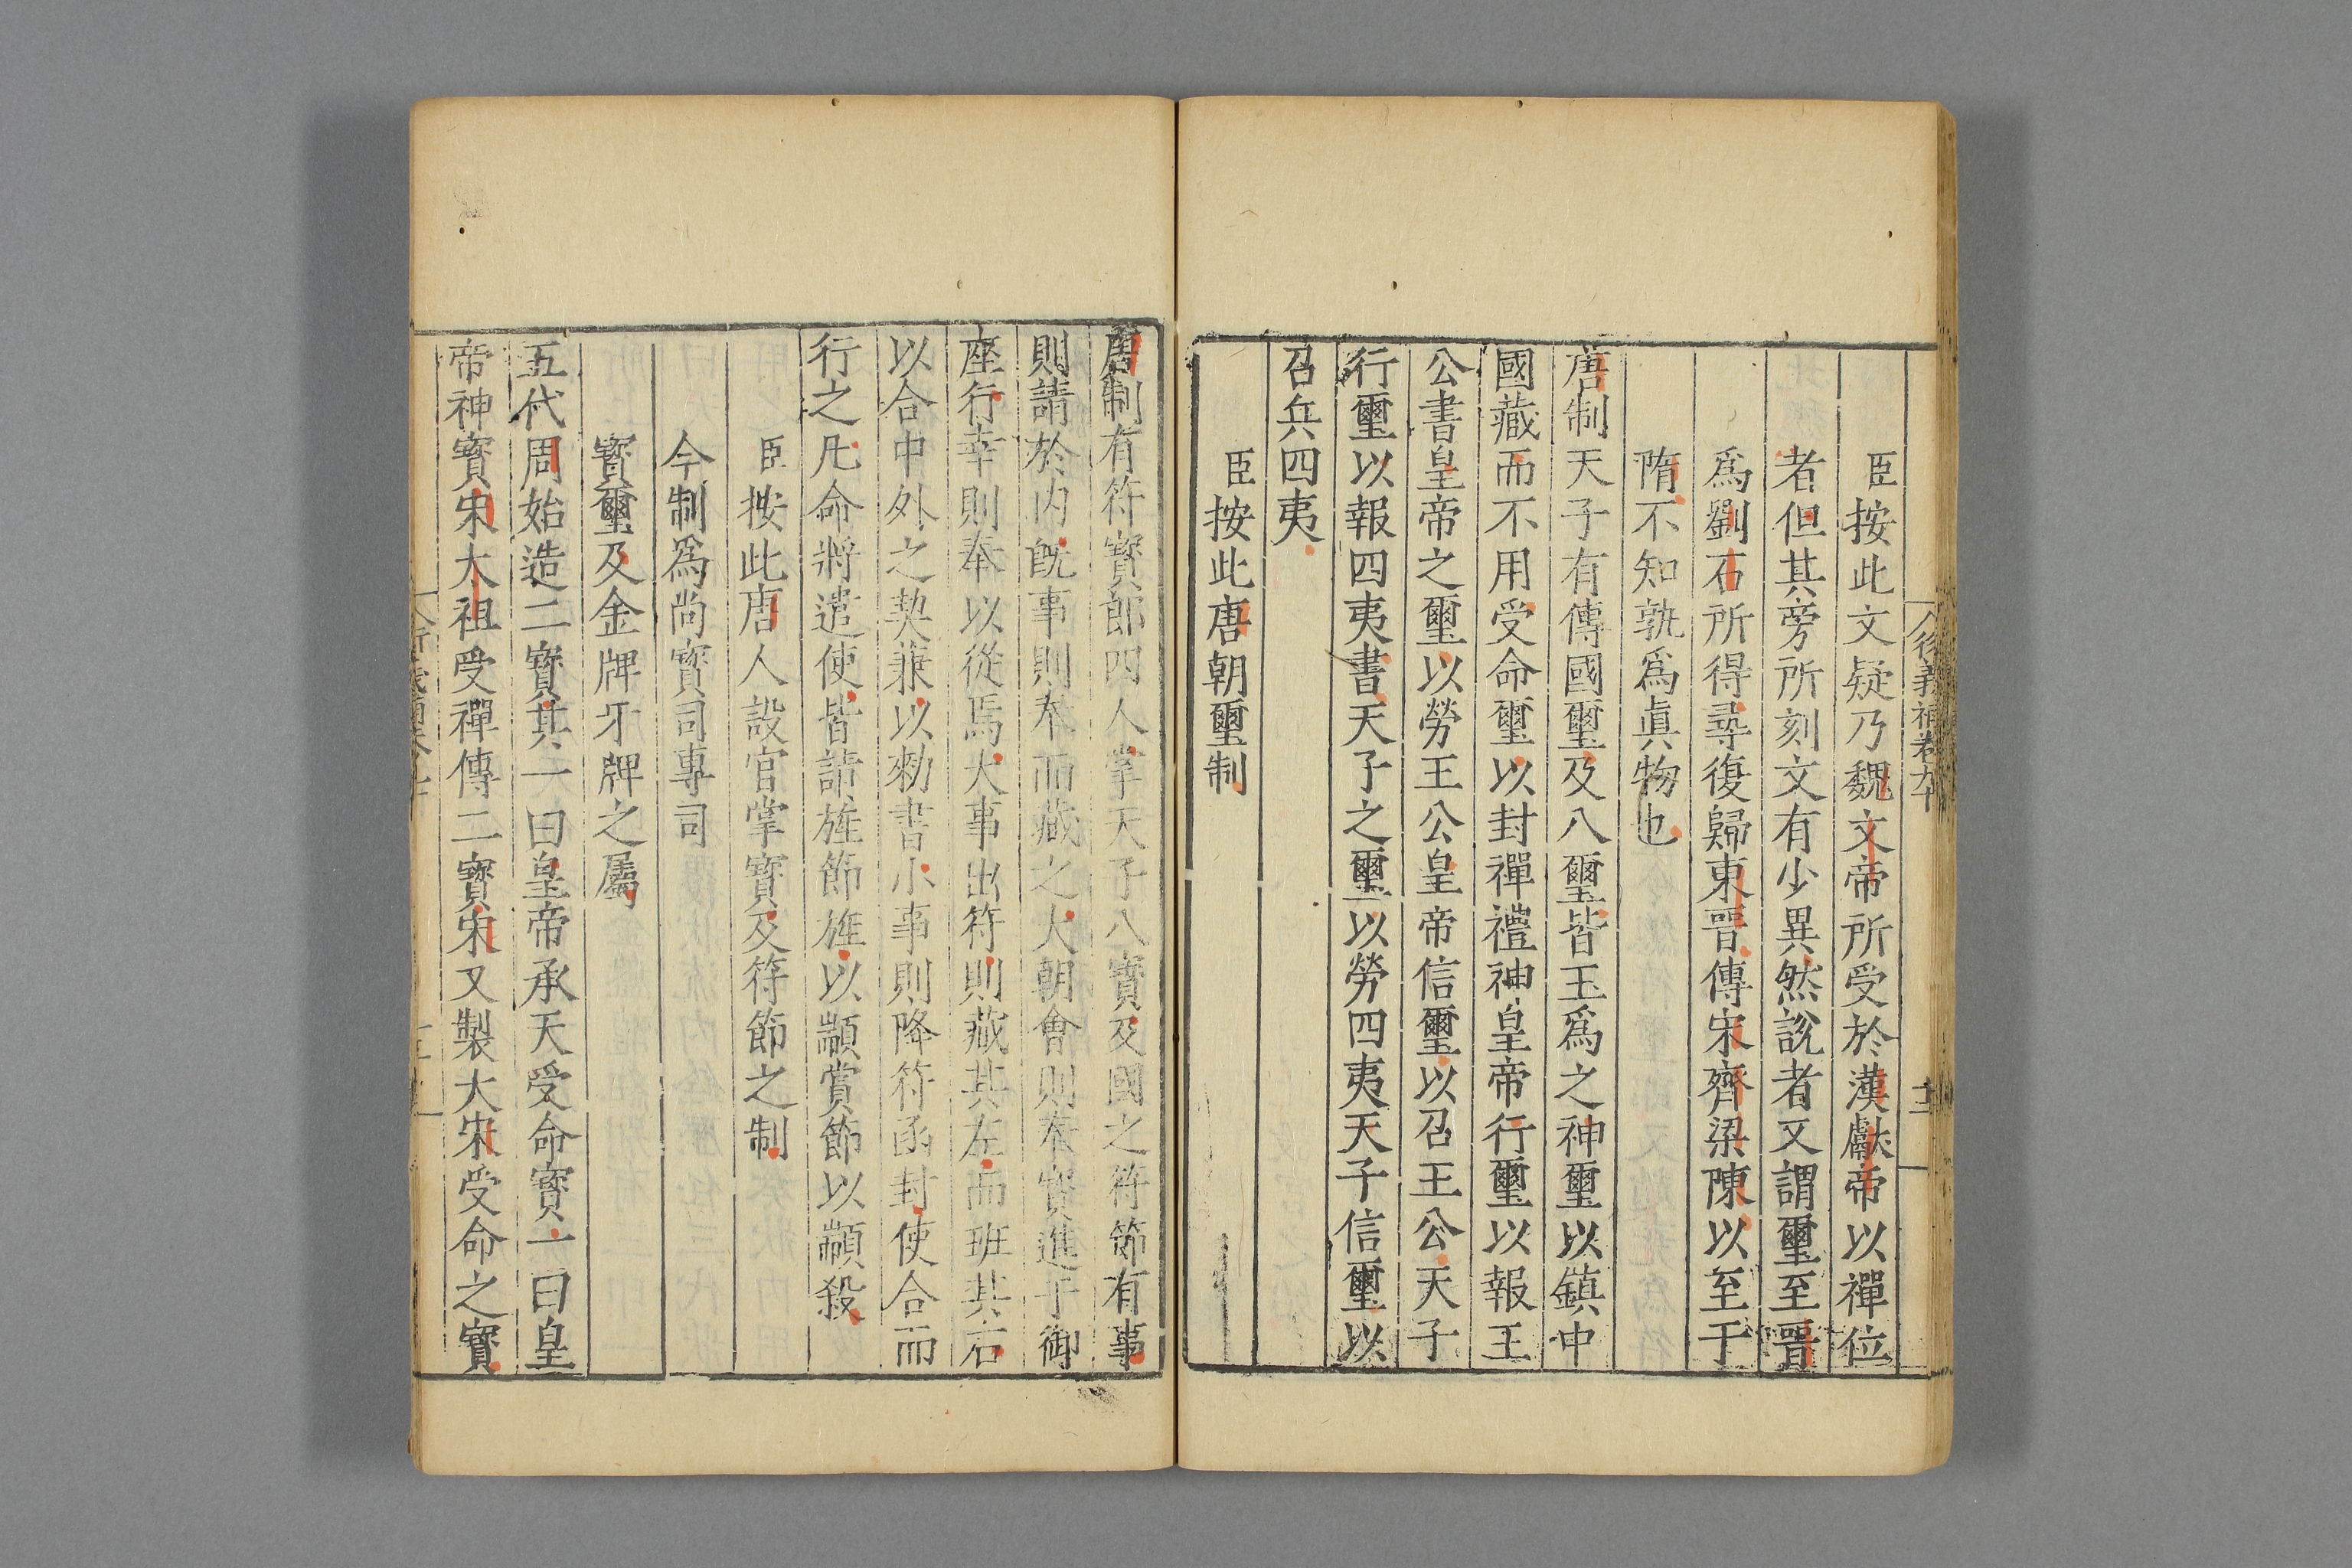 後義補卷九十
臣按此文疑乃魏文帝所受於漢獻帝以禪位
者但其旁所刻文有少異然說者又謂璽至晉
爲劉石所得尋復歸東晉傳宋齊梁陳以至于
隋不知孰爲眞物也
唐制天子有傳國璽及八璽皆玉爲之神璽以鎮中
國藏而不用受命璽以封禪禮神皇帝行璽以報王
公書皇帝之璽以勞王公皇帝信璽以召王公天子
行璽以報四夷書天子之璽以勞四夷天子信璽以
召兵四夷
臣按此唐朝璽制
唐制有符寶郎四人掌天子八寶及國之符節有事
則請於內旣事則奉而藏之大朝會則奉寶進于御
座行幸則奉以從焉大事出符則藏其左而班其右
以合中外之契兼以勑書小事則降符函封使合而
行之凡命將遣使皆請旌節旌以顓賞節以顓殺
臣按此唐人設官掌寶及符節之制
今制爲尚寶司專司
寶璽及金牌牙牌之屬
五代周始造二寶其一曰皇帝承天受命寶一曰皇
帝神寶宋太祖受禪傳二寶宋又製大宋受命之寶